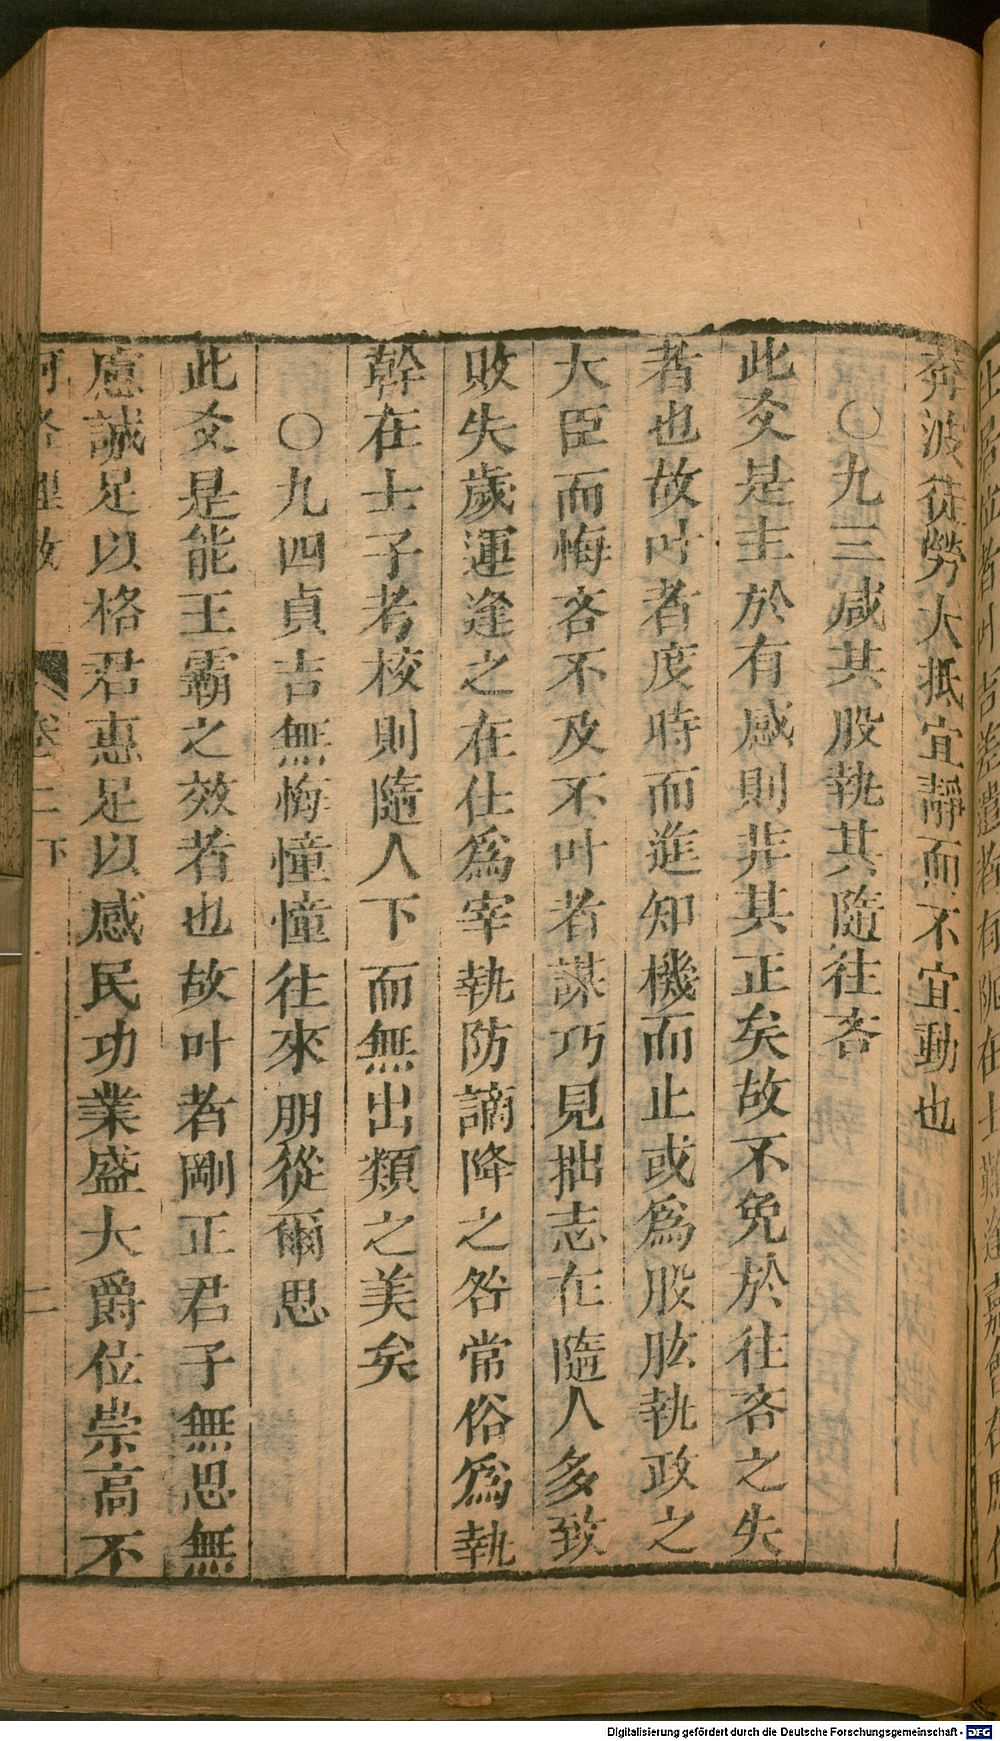 奔波徒勞大抵宜靜而不宜動也
〇九三咸其股執其隨往吝
此爻是主於有感則非其正矣故不免於往吝之失
者也故叶者度時而進知機而止或為股肱執政之
大臣而悔吝不及不叶者謀巧見拙志在隨人多致
敗失歲運逢之在仕為宰執防謫降之咎常俗為執
幹在士子考校則隨人下而無出類之美矣
〇九四貞吉無悔憧憧往來朋從爾思
此爻是能王霸之效者也故叶者剛正君子無思無
慮誠足以格君惠足以感民功業盛大爵位崇高不
河洛理數
卷二下
二
Digitalisierung gefördert durch die Deutsche Forschungsgemeinschaft - DFG